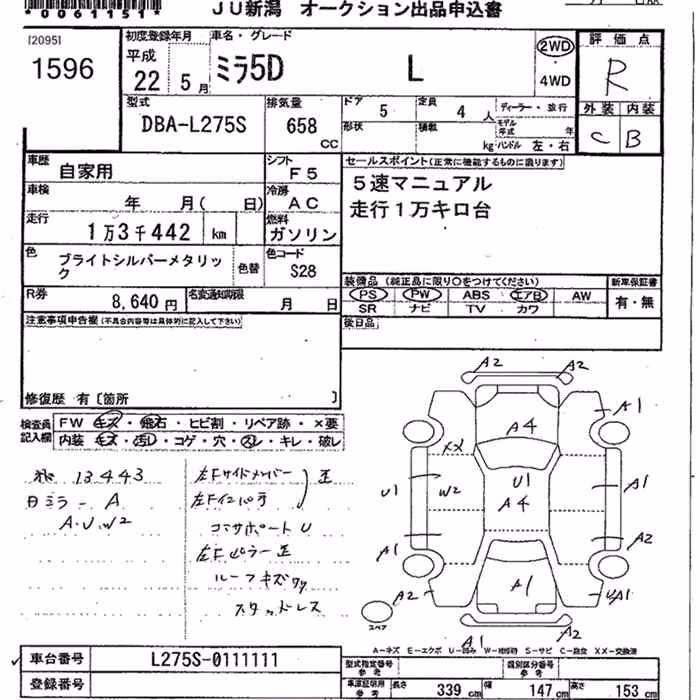 *0061151*
JU新潟 オークション出品申込書
[2095]
1596
初度登録年月
平成
22 5 月
車名・グレード
ミラ5D L
2WD
4WD
評価点
R
外装 内装
C B
型式
DBA-L275S
排気量
658
cc
ドア 5
定員 4 人
ディーラー・並行
形状
積載
kg
モデル年式 年
ハンドル 左・右
車歴
自家用
シフト
F5
車検
年 月( 日)
冷房
AC
走行
1万3千442 km
燃料
ガソリン
色
ブライトシルバーメタリック
色替
色コード
S28
R券
8,640 円
名変通知期限
月 日
セールスポイント(正常に機能するものに限ります)
5速マニュアル
走行1万キロ台
装備品 (純正品に限り○をつけてください)
PS PW ABS エアB AW
SR ナビ TV カワ
新車保証書
有・無
後日品
注意事項申告欄(不具合内容等は具体的に記入して下さい)
修復歴 有〔箇所 〕
検査員記入欄
FW キズ・飛石・ヒビ割・リペア跡・×要
内装 キズ・汚れ・コゲ・穴・スレ・キレ・破レ
13443
日ミラーA
A.U.W2
左Fサイドメンバー
左Fインパネ
コアサポートU
左Fピラー 歪
ルーフキズ
スタッドレス
A2 A2
A1
A4
XX
U1 W2 U1 A1
A4
A1 A2
A2 A1 UA1
A1 A2
スペア
A−キズ E−エクボ U−凹み W−補修跡 S−サビ C−腐食 XX−交換済
車台番号
L275S-0111111
登録番号
型式指定番号
参考
類別区分番号
参考
車庫証明用
参考
長さ 339 cm
幅 147 cm
高さ 153 cm